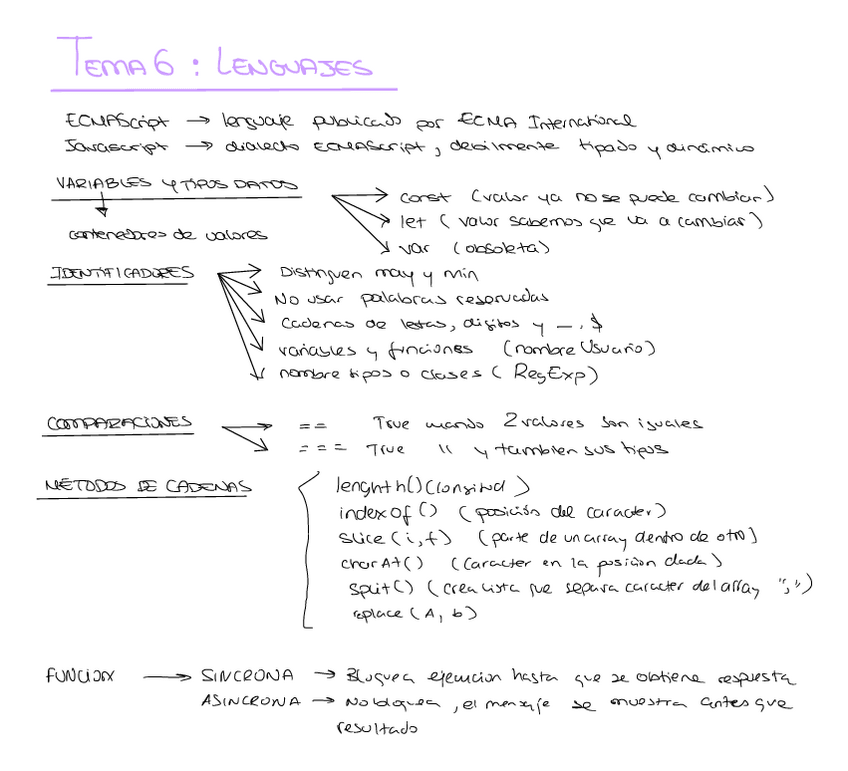 TEMA 6 : LENGUAJES
ECMAScript → lenguaje publicado por ECMA International
Javascript → dialecto ECMAScript, debilmente tipado y dinámico
VARIABLES Y TIPOS DATOS
const (valor ya no se puede cambiar)
let (valor sabemos que va a cambiar)
contenedores de valores
var (obsoleta)
IDENTIFICADORES
Distinguen may y min
No usar palabras reservadas
Cadenas de letras, digitos y _, $
variables y funciones (nombreUsuario)
nombre tipos o clases (RegExp)
COMPARACIONES
== True cuando 2 valores son iguales
=== True " y tambien sus tipos
MÉTODOS DE CADENAS
lenghth() (longitud)
indexof() (posición del caracter)
slice(i,f) (parte de un array dentro de otro)
charAt() (caracter en la posición dada)
split() (crea lista que separa caracter del array ",")
replace(A, b)
FUNCION → SINCRONA → Bloquea ejecucion hasta que se obtiene respuesta
ASINCRONA → No bloquea, el mensaje se muestra antes que
resultado